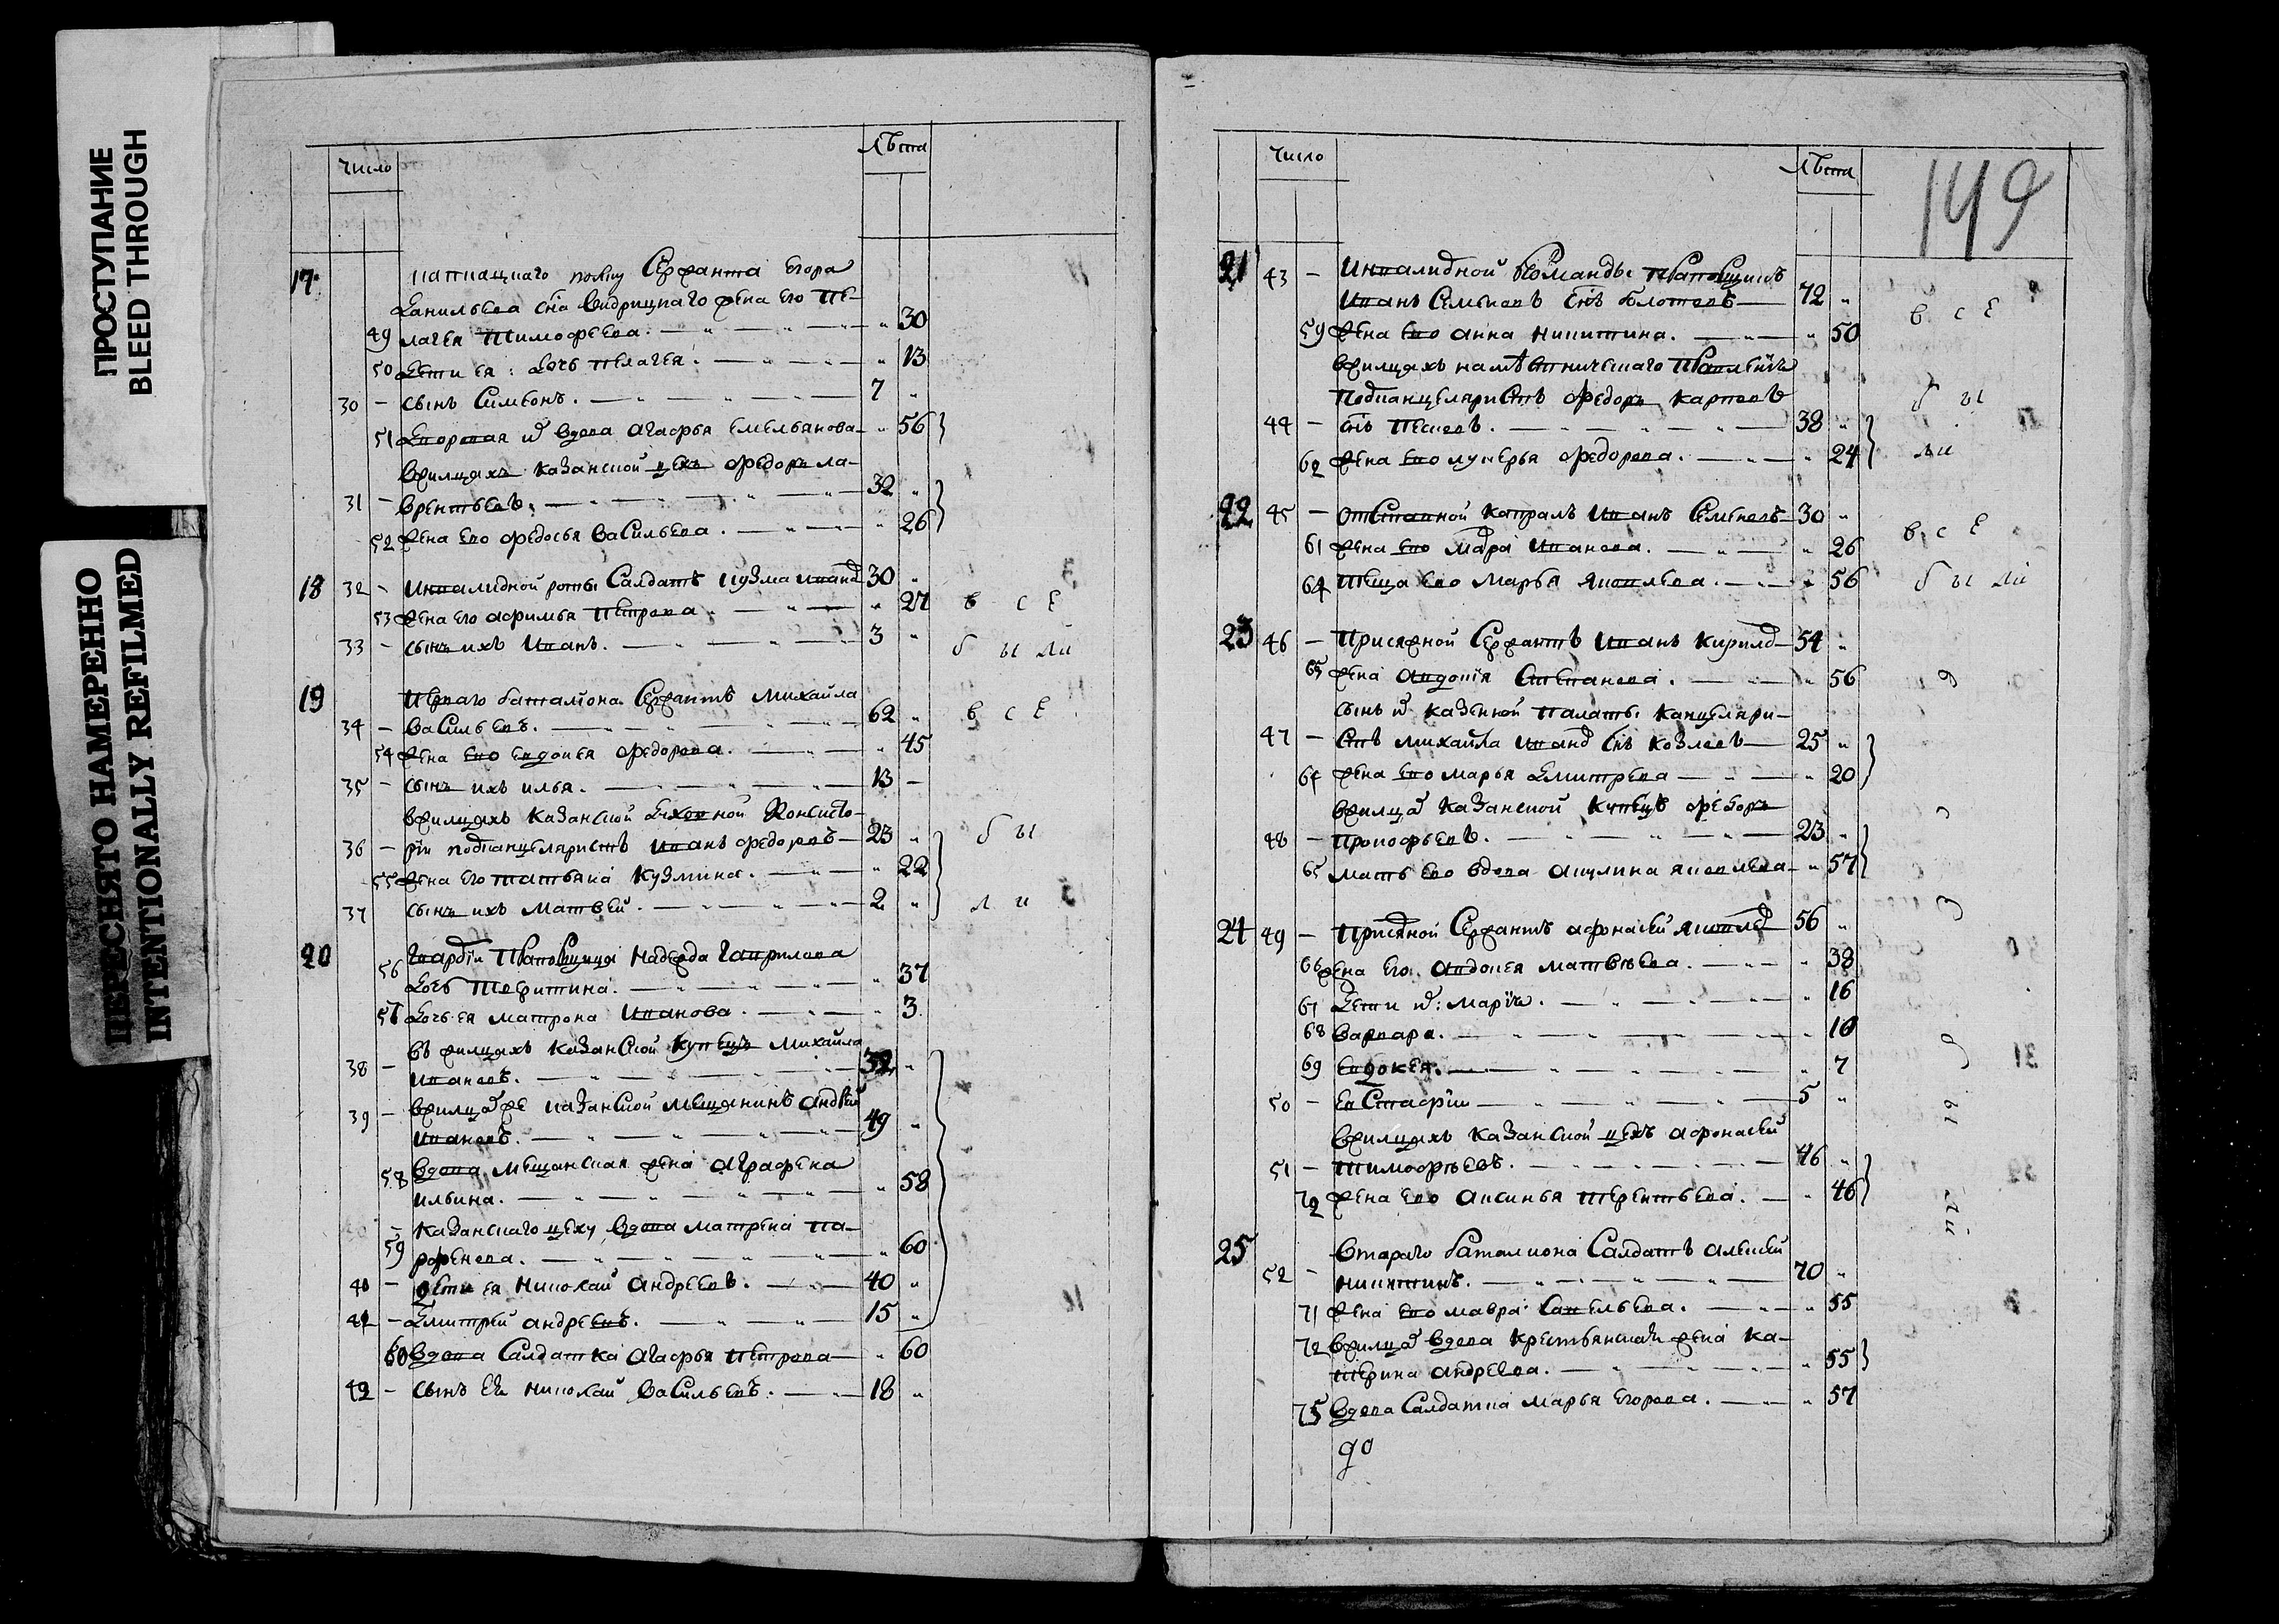 ПРОСТУПАНИЕ
BLEED THROUGH
ПЕРЕСНЯТО НАМЕРЕННО
INTENTIONALLY REFILMED
Число
Лѣта
17
полку Сержанта Егора
Данильева сна жена его Пе-
49 лагея Тимофеева. 30
50 Дети ея: дочь Пелагея. 13
30 - сынъ Симеонъ. 7
51 вдова Агафья Емельянова 56
вжилцахъ Казанской цехъ Федоръ Ла-
31 - врентьевъ. 32
52 жена ево Федосья Васильева. 26
18 32 - Инвалидной роты Салдатъ Кузма Иванов 30
53 жена его Афимья Петрова 27 в с е
33 - сынъ ихъ Иванъ. 3 б ы ли
19 Перваго баталiона Сержантъ Михайла
34 - Васильевъ. 62 в с е
54 жена ево Евдокея Федорова. 45
35 - сынъ ихъ Илья. 13 -
вжилцахъ Казанской Духовной Консисто-
36 - рiи подканцеляристъ Иванъ Федоровъ 23 б ы
55 жена его Татьяна Кузмина. 22
37 сынъ ихъ Матвей. 2 л и
20 Гвардiи Прапорщица Надежда Гаврилова
56 дочь 37
57 дочь ея Матрона Иванова. 3
въ жилцахъ Казанской Купецъ Михайла
38 - Ивановъ. 32
вжилцахже Казанской Мещанинъ Андрей
39 - Ивановъ. 49
58 вдова Мещанская жена Аграфена
Ильина. 58
Казанскаго цеху вдова Матрена Па-
59 рфенева. 60
40 - дети ея Николай Андреевъ. 40
41 - Дмитрей Андреевъ. 15
60 вдова Салдатка Агафья Петрова 60
42 - сынъ ея Николай Васильевъ. 18
149
Число
Лѣта
21 43 - Инвалидной Команды Прапорщикъ
Иванъ Семеновъ снъ Болотовъ 72 в с е
59 жена ево Анна Никитина. 50
вжилцахъ намѣстническаго Правленiя
Подканцеляристъ Федоръ Карповъ б ы
44 - снъ Песковъ. 38
62 жена ево Лукерья Федорова. 24 ли
22 45 - Отставной Капралъ Иванъ Семеновъ 30 в с е
61 жена ево Ивановa. 26
64 Теща ево Марья Яковлева. 56 б ы ли
23 46 - Присяжной Сержантъ Иванъ Кирилов 54
63 жена Авдотiя Степанова. 56
сынъ их Казенной Палаты Канцеляри-
47 - стъ Михайла Иванов снъ Козловъ 25
64 жена ево Марья Дмитрева 20
вжилцах Казанской Купецъ Федоръ
48 - Прокофьевъ. 23
65 мать ево вдова Акулина Яковлева 57
24 49 - Присяжной Сержантъ Афонасей Яковлев 56
66 жена его Авдокея Матвѣева. 38
67 Дети их: Марiя. 16
68 Варвара. 10
69 Евдокея. 7
50 - Евстафiи 5
вжилцахъ Казанской цехъ Афонасей
51 - Тимофѣевъ. 46
72 жена ево Аксинья Терентьева. 46
ы
ли
25 Втораго Баталиона Салдатъ Алексей
52 - Никитинъ. 70
71 жена ево Мавра Савельева. 55
72 вжилцах вдова Крестьянская жена Ка-
терина Андреева. 55
75 вдова Салдатка Марья Егорова. 57